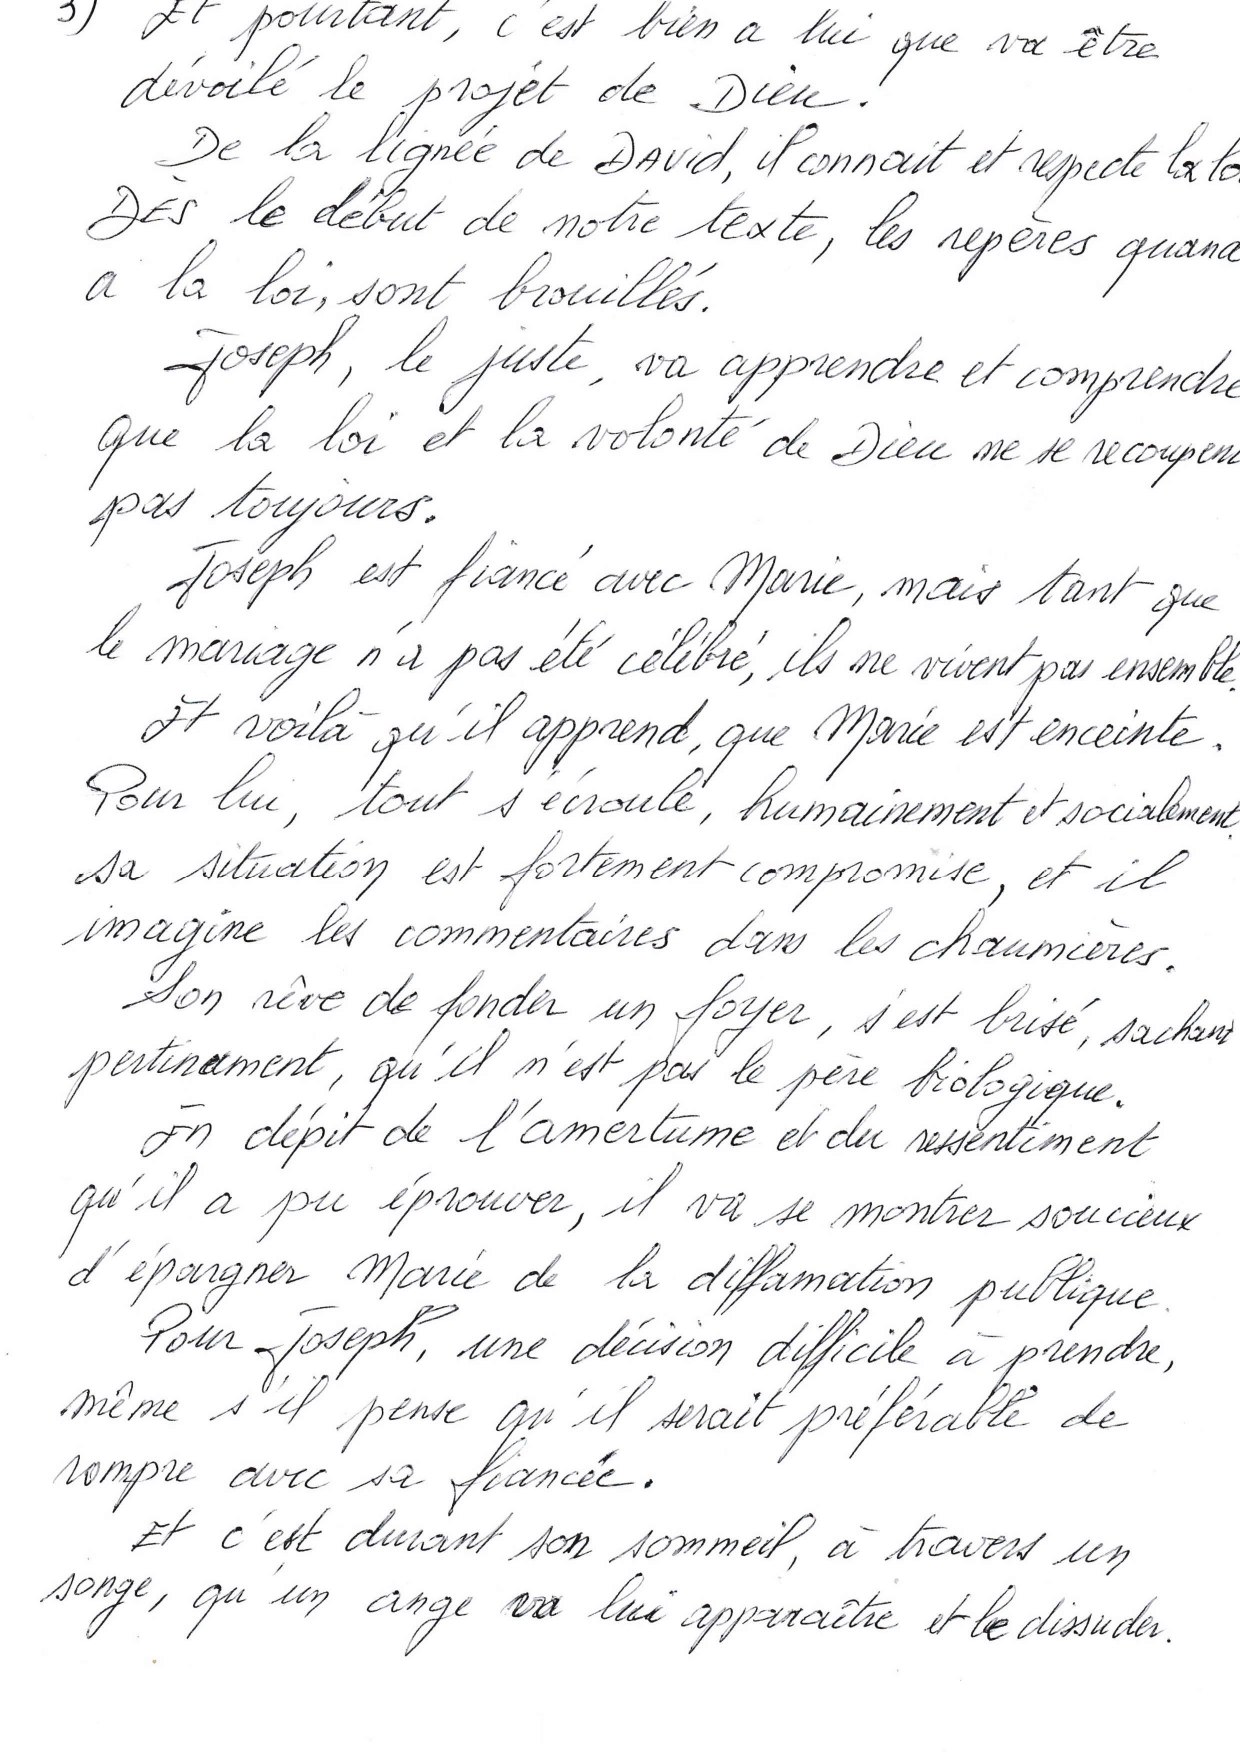 3) Et pourtant, c'est bien a lui que va être
dévoilé le projet de Dieu.
De la lignée de DAVID, il connait et respecte la lo
DÈS le début de notre texte, les repères quand
a la loi, sont brouillés.
Joseph, le juste, va apprendre et comprendre
que la loi et la volonté de Dieu ne se recoupent
pas toujours.
Joseph est fiancé avec Marie, mais tant que
le mariage n'a pas été célébré, ils ne vivent pas ensemble.
Et voilà qu'il apprend, que Marie est enceinte.
Pour lui, tout s'écroule, humainement et socialement.
sa situation est fortement compromise, et il
imagine les commentaires dans les chaumières.
Son rêve de fonder un foyer, s'est brisé, sachant
pertinament, qu'il n'est pas le père biologique.
En dépit de l'amertume et du ressentiment
qu'il a pu éprouver, il va se montrer soucieux
d'épargner Marie de la diffamation publique.
Pour Joseph, une décision difficile à prendre,
même s'il pense qu'il serait préférable de
rompre avec sa fiancée.
Et c'est durant son sommeil, à travers un
songe, qu'un ange va lui apparaître et le dissuder.